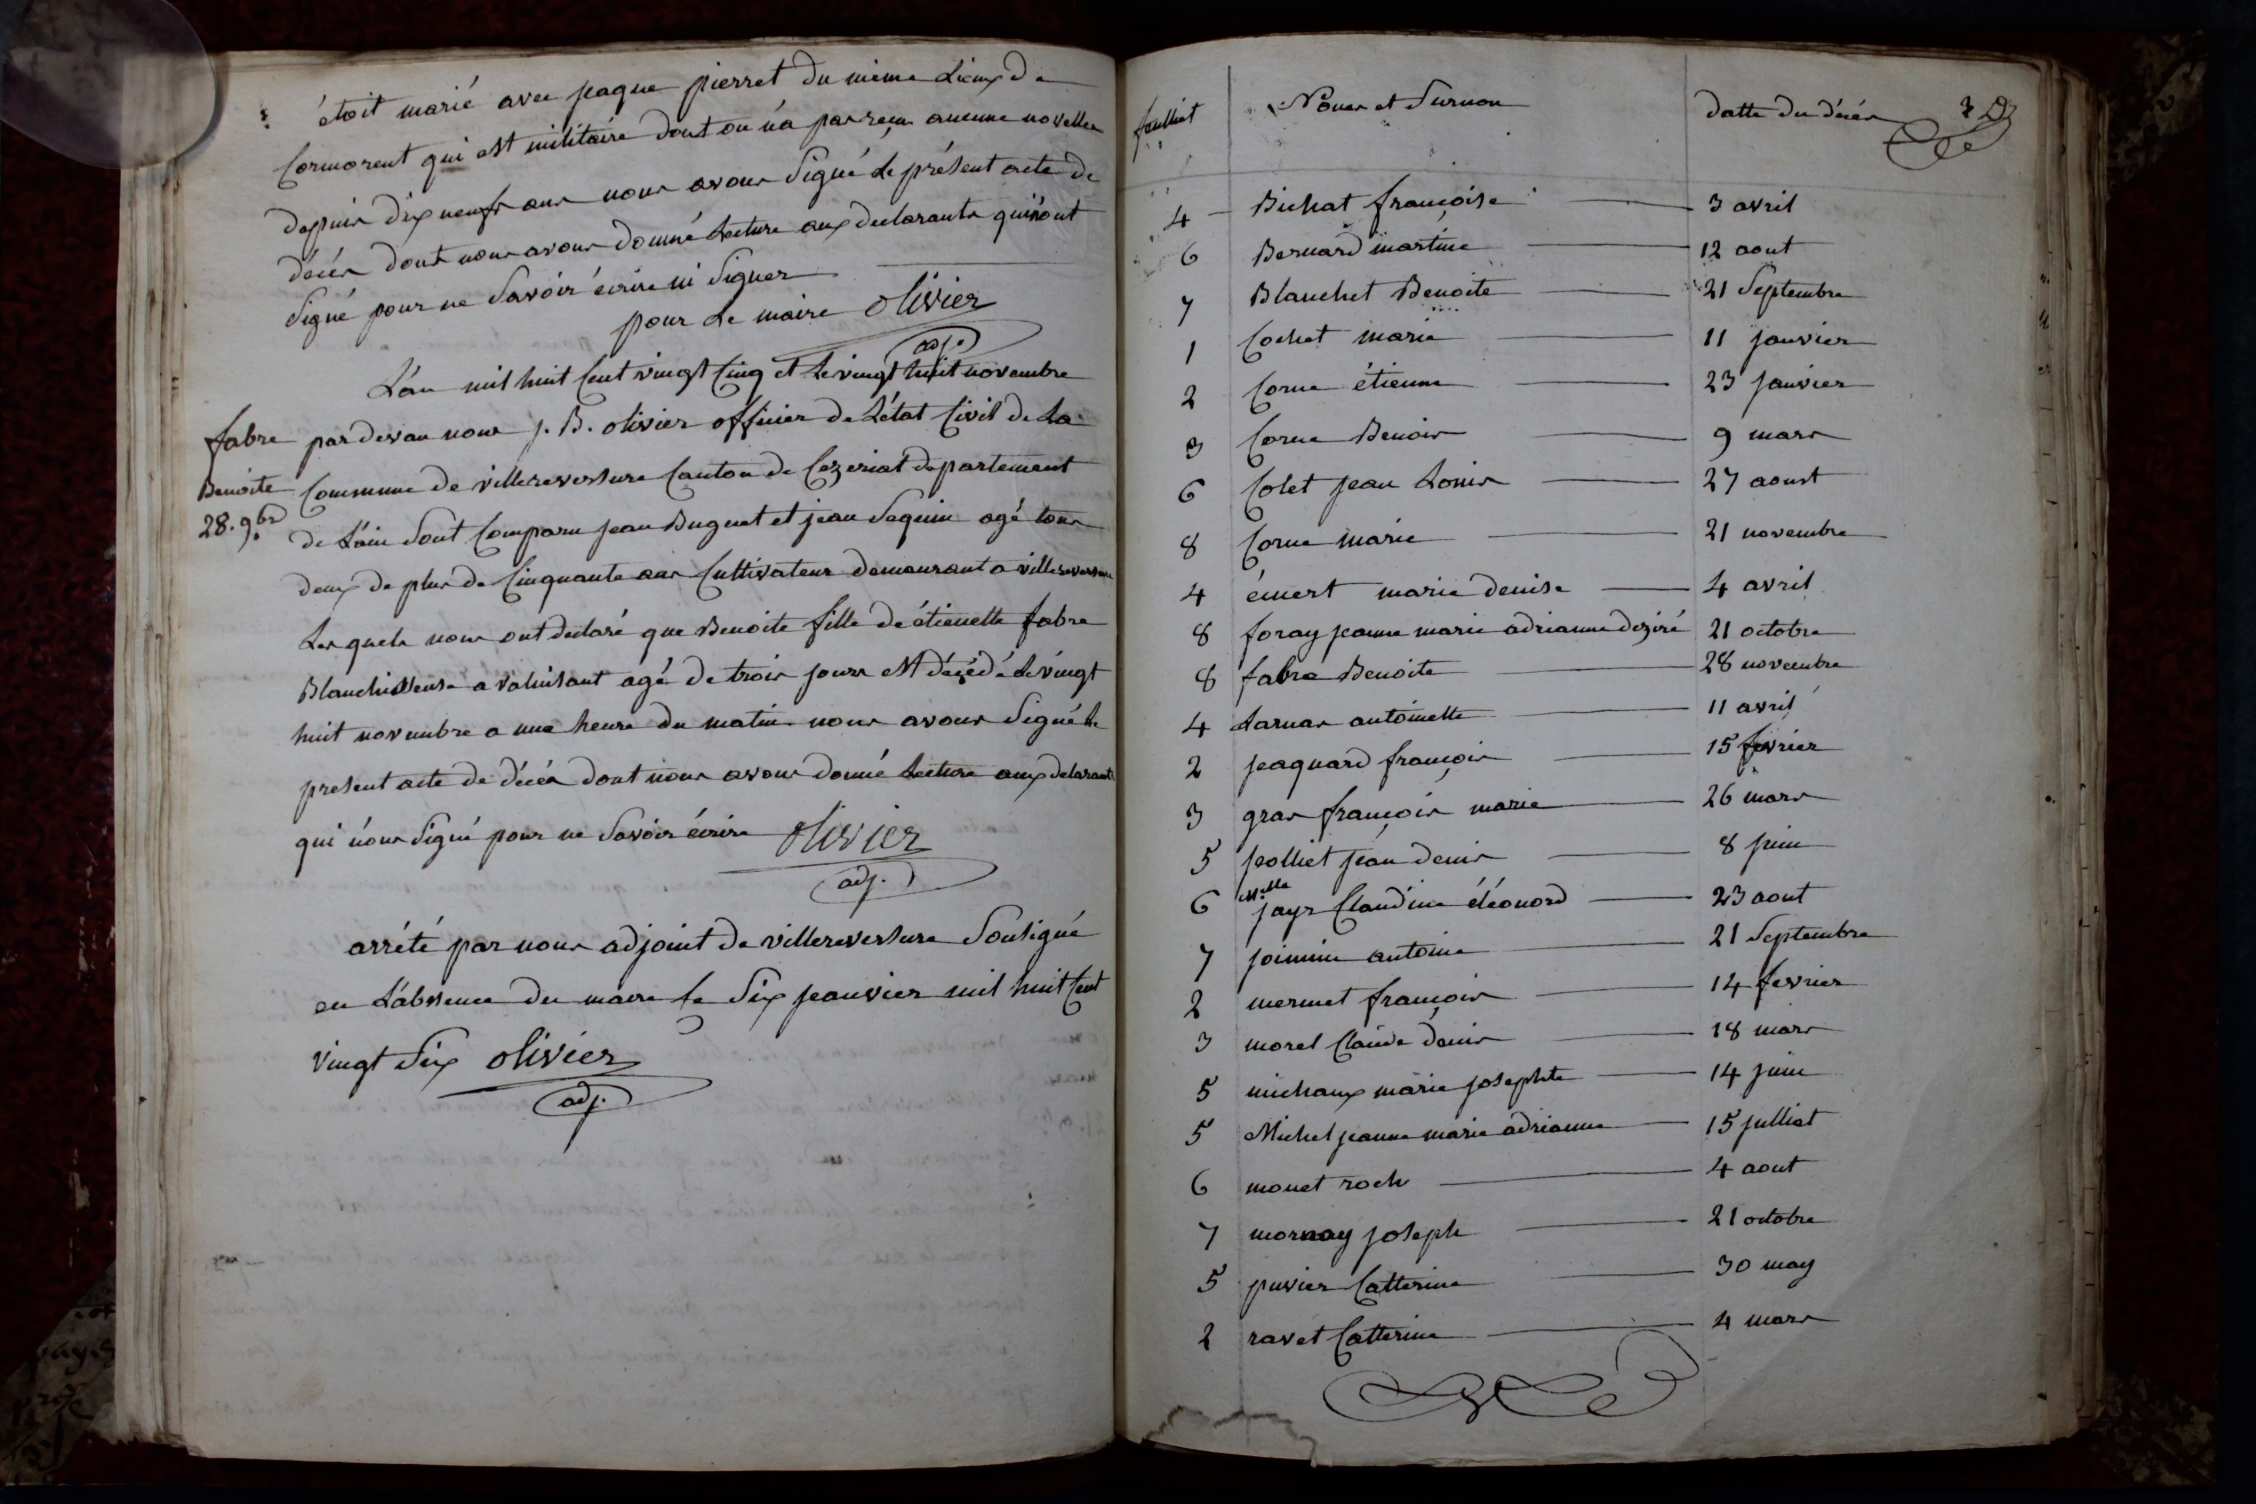 étoit marié avec jeaque pierret du même Lieux de
Cormorent qui est militaire dont on n'a pas reçu aucune novelles
depuis dix neufs ans nous avons Signé Le présent acte de
décés dont nous avons donné Lecture aux declarants qui n'ont
Signé pour ne Savoir écrire ni Signer
pour Le maire olivier
adj.
L'an mil huit Cent vingt Cinq et Le vingt huit novembre
fabre par devan nous j. B. olivier officier de L'état Civil de La
Benoite Commune de villereversure Canton de Cezeriat departement
28. 9bre de L'ain Sont Comparu jean Buguet et jean Seguin agé tous
deux de plus de Cinquante ans Cultivateur demeurant a villereversure
Les quels nous ont declaré que Benoite fille de étienette fabre
Blanchisseuse a valuisant agé de trois jours est décédé Le vingt
huit novembre a une heure du matin nous avons Signé Le
present acte de décés dont nous avons donné Lecture aux delarants
qui n'ons Signé pour ne Savoir écrire olivier
adj.
arrété par nous adjoint de villereversure Sousigné
en L'absence du maire le Six jeanvier mil huit Cent
vingt Six olivier
adj.
feulliet Noms et Surnon datte du décés
4 Bichat françoise 3 avril
6 Bernard martine 12 aout
7 Blanchet Benoite 21 Septembre
1 Cochet marie 11 janvier
2 Corne étienne 23 janvier
3 Corne Benois 9 mars
6 Colet jean Louis 27 aoust
8 Corne marie 21 novembre
4 émert marie denise 4 avril
8 foray jeanne marie adrianne deziré 21 octobre
8 fabre Benoite 28 novembre
4 Larnas antoinette 11 avril
2 jeaquard françois 15 fevrier
3 gras françois marie 26 mars
5 jeolliet jean denis 8 juin
6 Mlle jayr Claudine éléonord 23 aout
7 joimin antoine 21 Septembre
2 mermet françois 14 fevrier
3 morel Claude denis 18 mars
5 michaux marie josephte 14 juin
5 Michel jeanne marie adrianne 15 julliet
6 monet roch 4 aout
7 mornay joseph 21 octobre
5 puvier Catterine 30 may
2 ravet Catterine 4 mars